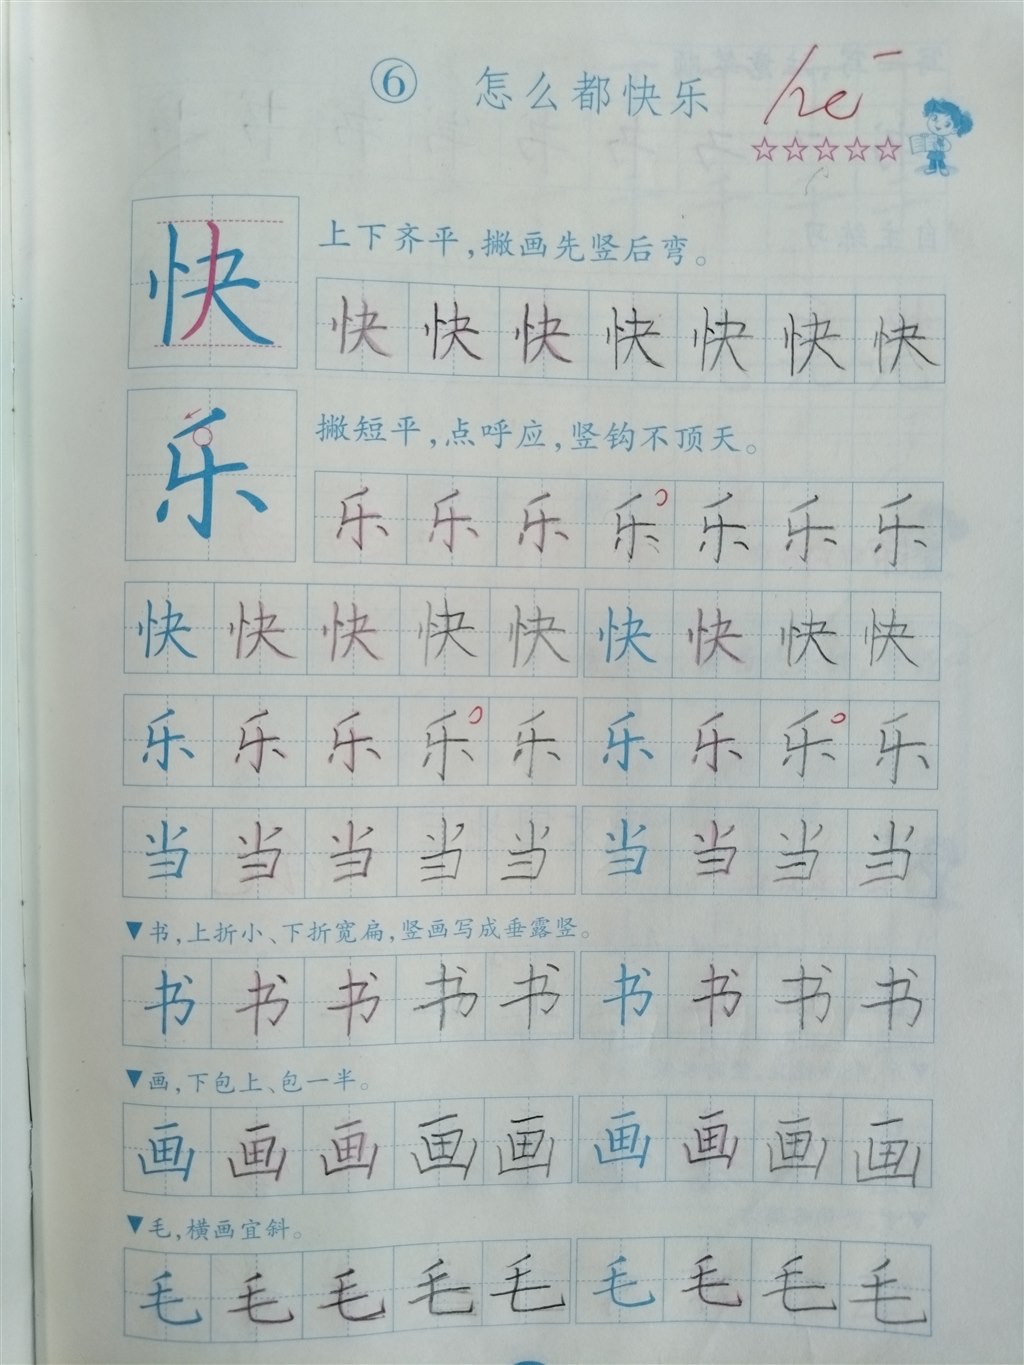 ⑥ 怎么都快乐
快
上下齐平,撇画先竖后弯。
快快快快快快快
乐
撇短平,点呼应,竖钩不顶天。
乐乐乐乐乐乐乐
快快快快快快快快快
乐乐乐乐乐乐乐乐乐
当当当当当当当当当
▼书,上折小、下折宽扁,竖画写成垂露竖。
书书书书书书书书书
▼画,下包上、包一半。
画画画画画画画画画
▼毛,横画宜斜。
毛毛毛毛毛毛毛毛毛